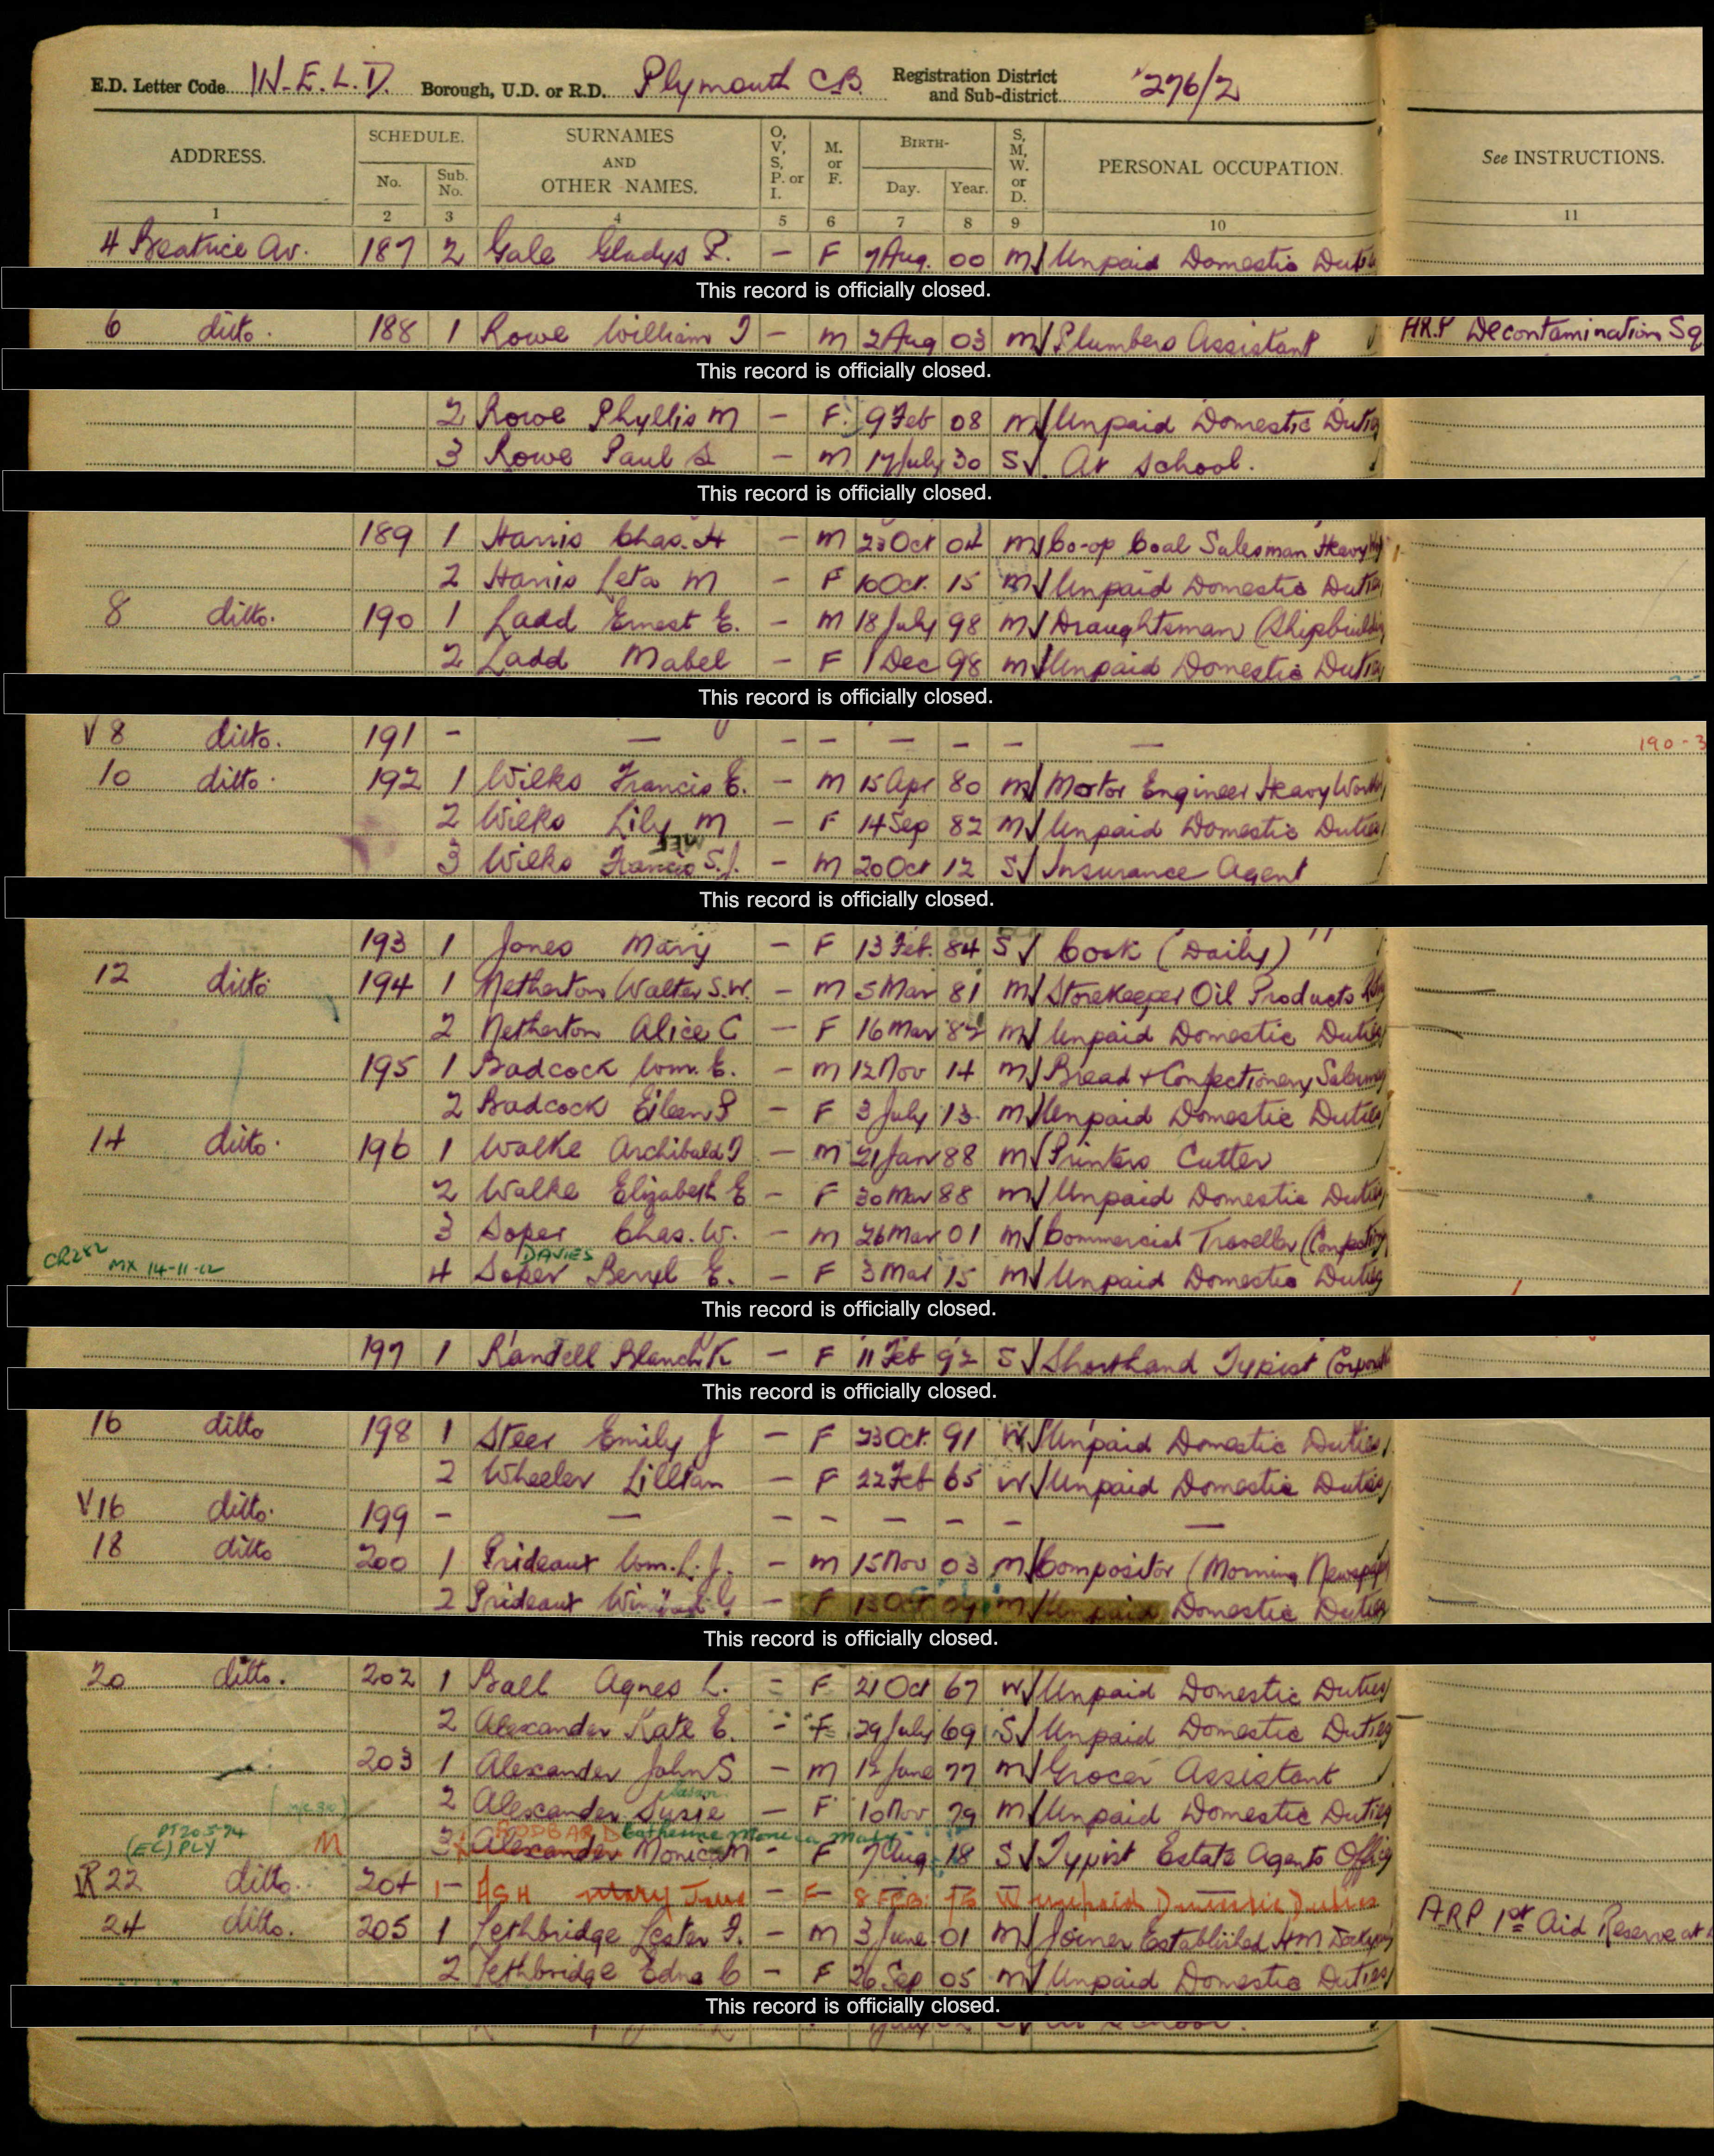 E.D. Letter Code W.E.L.D. Borough, U.D. or R.D. Plymouth C.B. Registration District and Sub-district 276/2
ADDRESS. SCHEDULE. No. Sub. No. SURNAMES AND OTHER NAMES. O, V, S, P. or I. M. or F. BIRTH- Day. Year. S, M, W. or D. PERSONAL OCCUPATION. See INSTRUCTIONS.
1 2 3 4 5 6 7 8 9 10 11
4 Beatrice Av. 187 2 Gale Gladys P. - F 7 Aug. 00 M Unpaid Domestic Duties
This record is officially closed.
6 ditto. 188 1 Rowe William J - M 2 Aug 03 M Plumbers Assistant ARP Decontamination Sq
This record is officially closed.
2 Rowe Phyllis M - F 9 Feb 08 M Unpaid Domestic Duties
3 Rowe Paul - M 17 July 30 S At School.
This record is officially closed.
189 1 Harris Chas. H - M 23 Oct 04 M Co-op Coal Salesman Heavy
2 Harris Leta M - F 10 Oct. 15 M Unpaid Domestic Duties
8 ditto. 190 1 Ladd Ernest E. - M 18 July 98 M Draughtsman (Shipbuilding
2 Ladd Mabel - F 1 Dec 98 M Unpaid Domestic Duties
This record is officially closed.
V 8 ditto. 191 - — - - - - - — 190-3
10 ditto. 192 1 Wilks Francis E. - M 15 Apr 80 M Motor Engineer Heavy Work
2 Wilks Lily M - F 14 Sep 82 M Unpaid Domestic Duties
3 Wilks Francis S.J. - M 20 Oct 12 S Insurance Agent
This record is officially closed.
193 1 Jones Mary - F 13 Feb. 84 S Cook (Daily)
12 ditto 194 1 Netherton Walter S.W. - M 5 Mar 81 M Storekeeper Oil Products
2 Netherton Alice C - F 16 Mar 82 M Unpaid Domestic Duties
195 1 Badcock Wm. E. - M 12 Nov 14 M Bread + Confectionery Salesman
2 Badcock Eileen P - F 3 July 13 M Unpaid Domestic Duties
14 ditto. 196 1 Walke Archibald J - M 21 Jan 88 M Printers Cutter
2 Walke Elizabeth E - F 30 Mar 88 M Unpaid Domestic Duties
3 Soper Chas. W. - M 26 Mar 01 M Commercial Traveller
DAVIES
CR282 MX 14-11-
4 Soper Beryl E. - F 3 Mar 15 M Unpaid Domestic Duties
This record is officially closed.
197 1 Randell Blanch K - F 11 Feb 92 S Shorthand Typist
This record is officially closed.
16 ditto 198 1 Steer Emily J - F 23 Oct. 91 W Unpaid Domestic Duties
2 Wheeler Lillian - F 22 Feb 65 W Unpaid Domestic Duties
V16 ditto. 199 - — - - - - - —
18 ditto 200 1 Prideaux Wm. L. J. - M 15 Nov 03 M Compositor (Morning Newspaper
2 Prideaux G - F 13 Oct M Unpaid Domestic Duties
This record is officially closed.
20 ditto. 202 1 Ball Agnes L. - F 21 Oct 67 W Unpaid Domestic Duties
2 Alexander Kate E. - F 29 July 69 S Unpaid Domestic Duties
203 1 Alexander John S - M 12 June 77 M Grocer Assistant
2 Alexander Susie - F 10 Nov 79 M Unpaid Domestic Duties
Catherine Monica Mary
(EC) PLY M 3 Alexander Monica M - F 7 Aug 18 S Typist Estate Agents Office
R 22 ditto. 204 1 ASH Mary Jane - F 8 FEB: W unpaid Domestic Duties
24 ditto. 205 1 Lethbridge Lester J. - M 3 June 01 M Joiner Established H.M. Dockyard ARP 1st Aid Reserve at
2 Lethbridge Edna C - F 26 Sep 05 M Unpaid Domestic Duties
This record is officially closed.